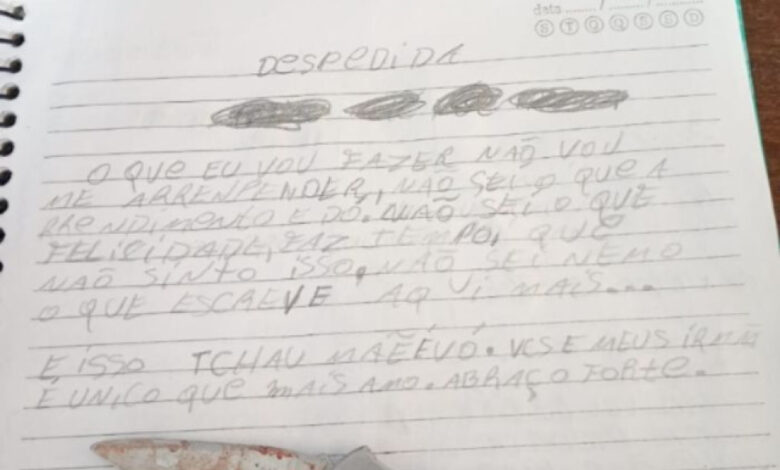 data ....... / ....... / .......
S T Q Q S S D
DESPEDIDA
O QUE EU VOU FAZER NÃO VOU
ME ARRENPENDER, NÃO SEI O QUE A
RRENDIMENTO E DÓ. NÃO SEI O QUE
FELICIDADE, FAZ TEMPOI QUE
NÃO SINTO ISSO, NÃO SEI NEMO
O QUE ESCREVE AQ Vi MAIS...
E ISSO TCHAU MAẼEVÓ. VCS E MEUS IRMÃ
É UNICO QUE MAIS AMO. ABRAÇO FORTE.